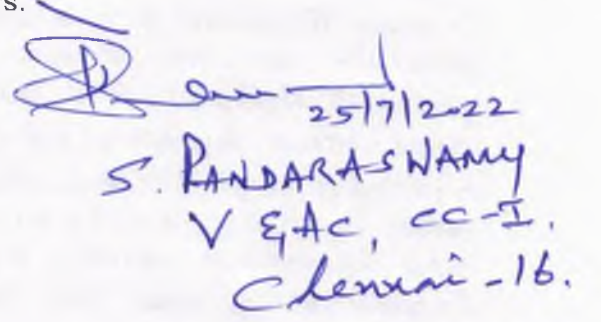 s.
25/7/2022
S. PANDARASWAMY
V &AC, CC-I.
Chennai-16.